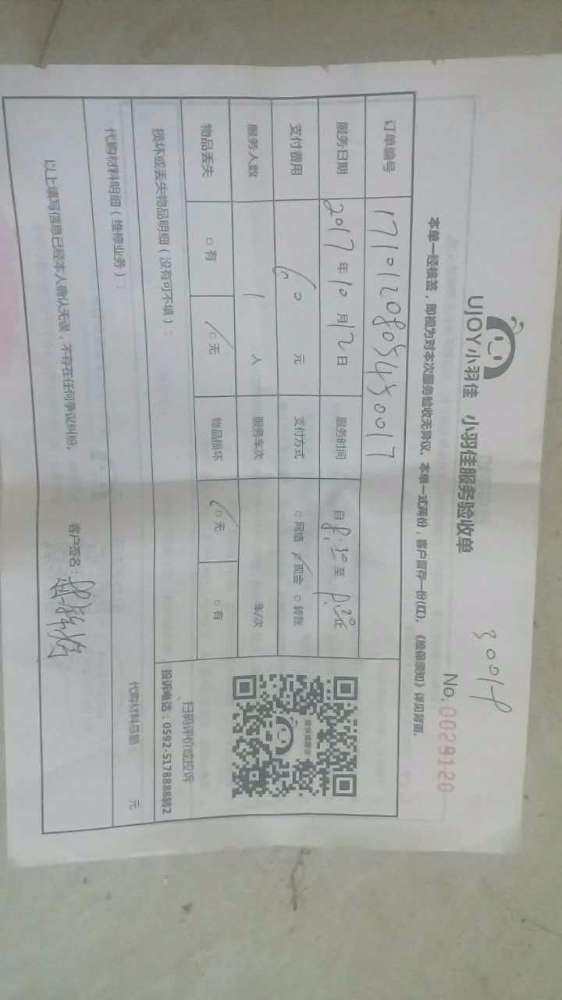 30018
UJOY小羽佳 小羽佳服务验收单
No. 0029120
本单一经核签，即视为对本次服务验收无异议。本单一式两份，客户留存一份(红)。《维保须知》详见背面。
订单编号 1710120805450017
服务日期 2017年10月12日 服务时间 自8:30至
支付费用 60元 支付方式 ○网络 现金 ○转账
服务人数 1人 服务车次 车/次
物品丢失 ○有 无 物品损坏 无 ○有
扫码评价或投诉
损坏或丢失物品明细（没有可不填）：
投诉电话：0592-5178888转2
代购材料明细（维修业务）：
代购材料总额 元
以上填写信息已经本人确认无误，不存在任何争议纠纷。
客户签名：